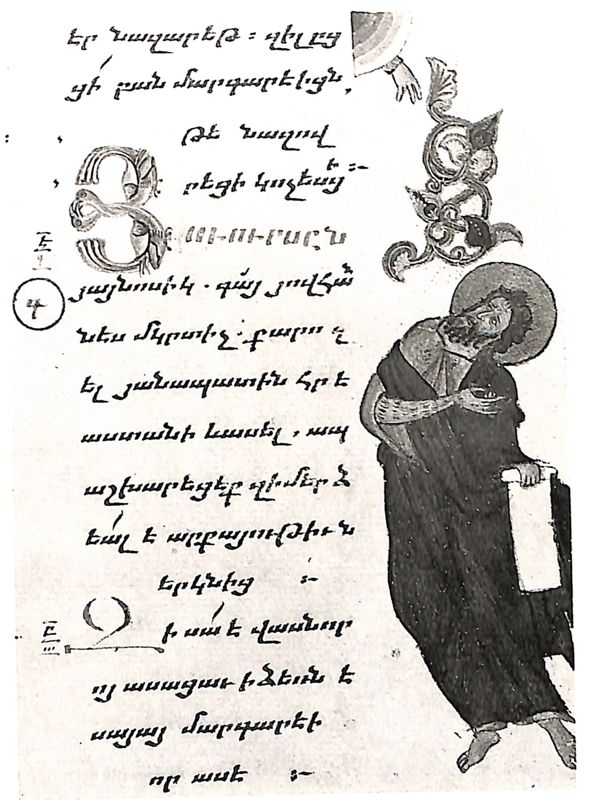 եր նազարէթ ։ զի լըց
ցի բան մարգարէիցն,
թէ նազով
րեցի կոչեսցի ։-
Է
Յաւուրսըն
յայնոսիկ . գայ յովհան
նէս մկրտիչ . քարոզ
ել յանապատին հրէ
աստանի և ասել . ապ
աշխարեցէք զի մերձ
եալ է արքայութիւն
երկնից ։-
Ը
Զի սա է վասն որ
ոյ ասացաւ ի ձեռն է
սայայ մարգարէի
որ ասէ ։-